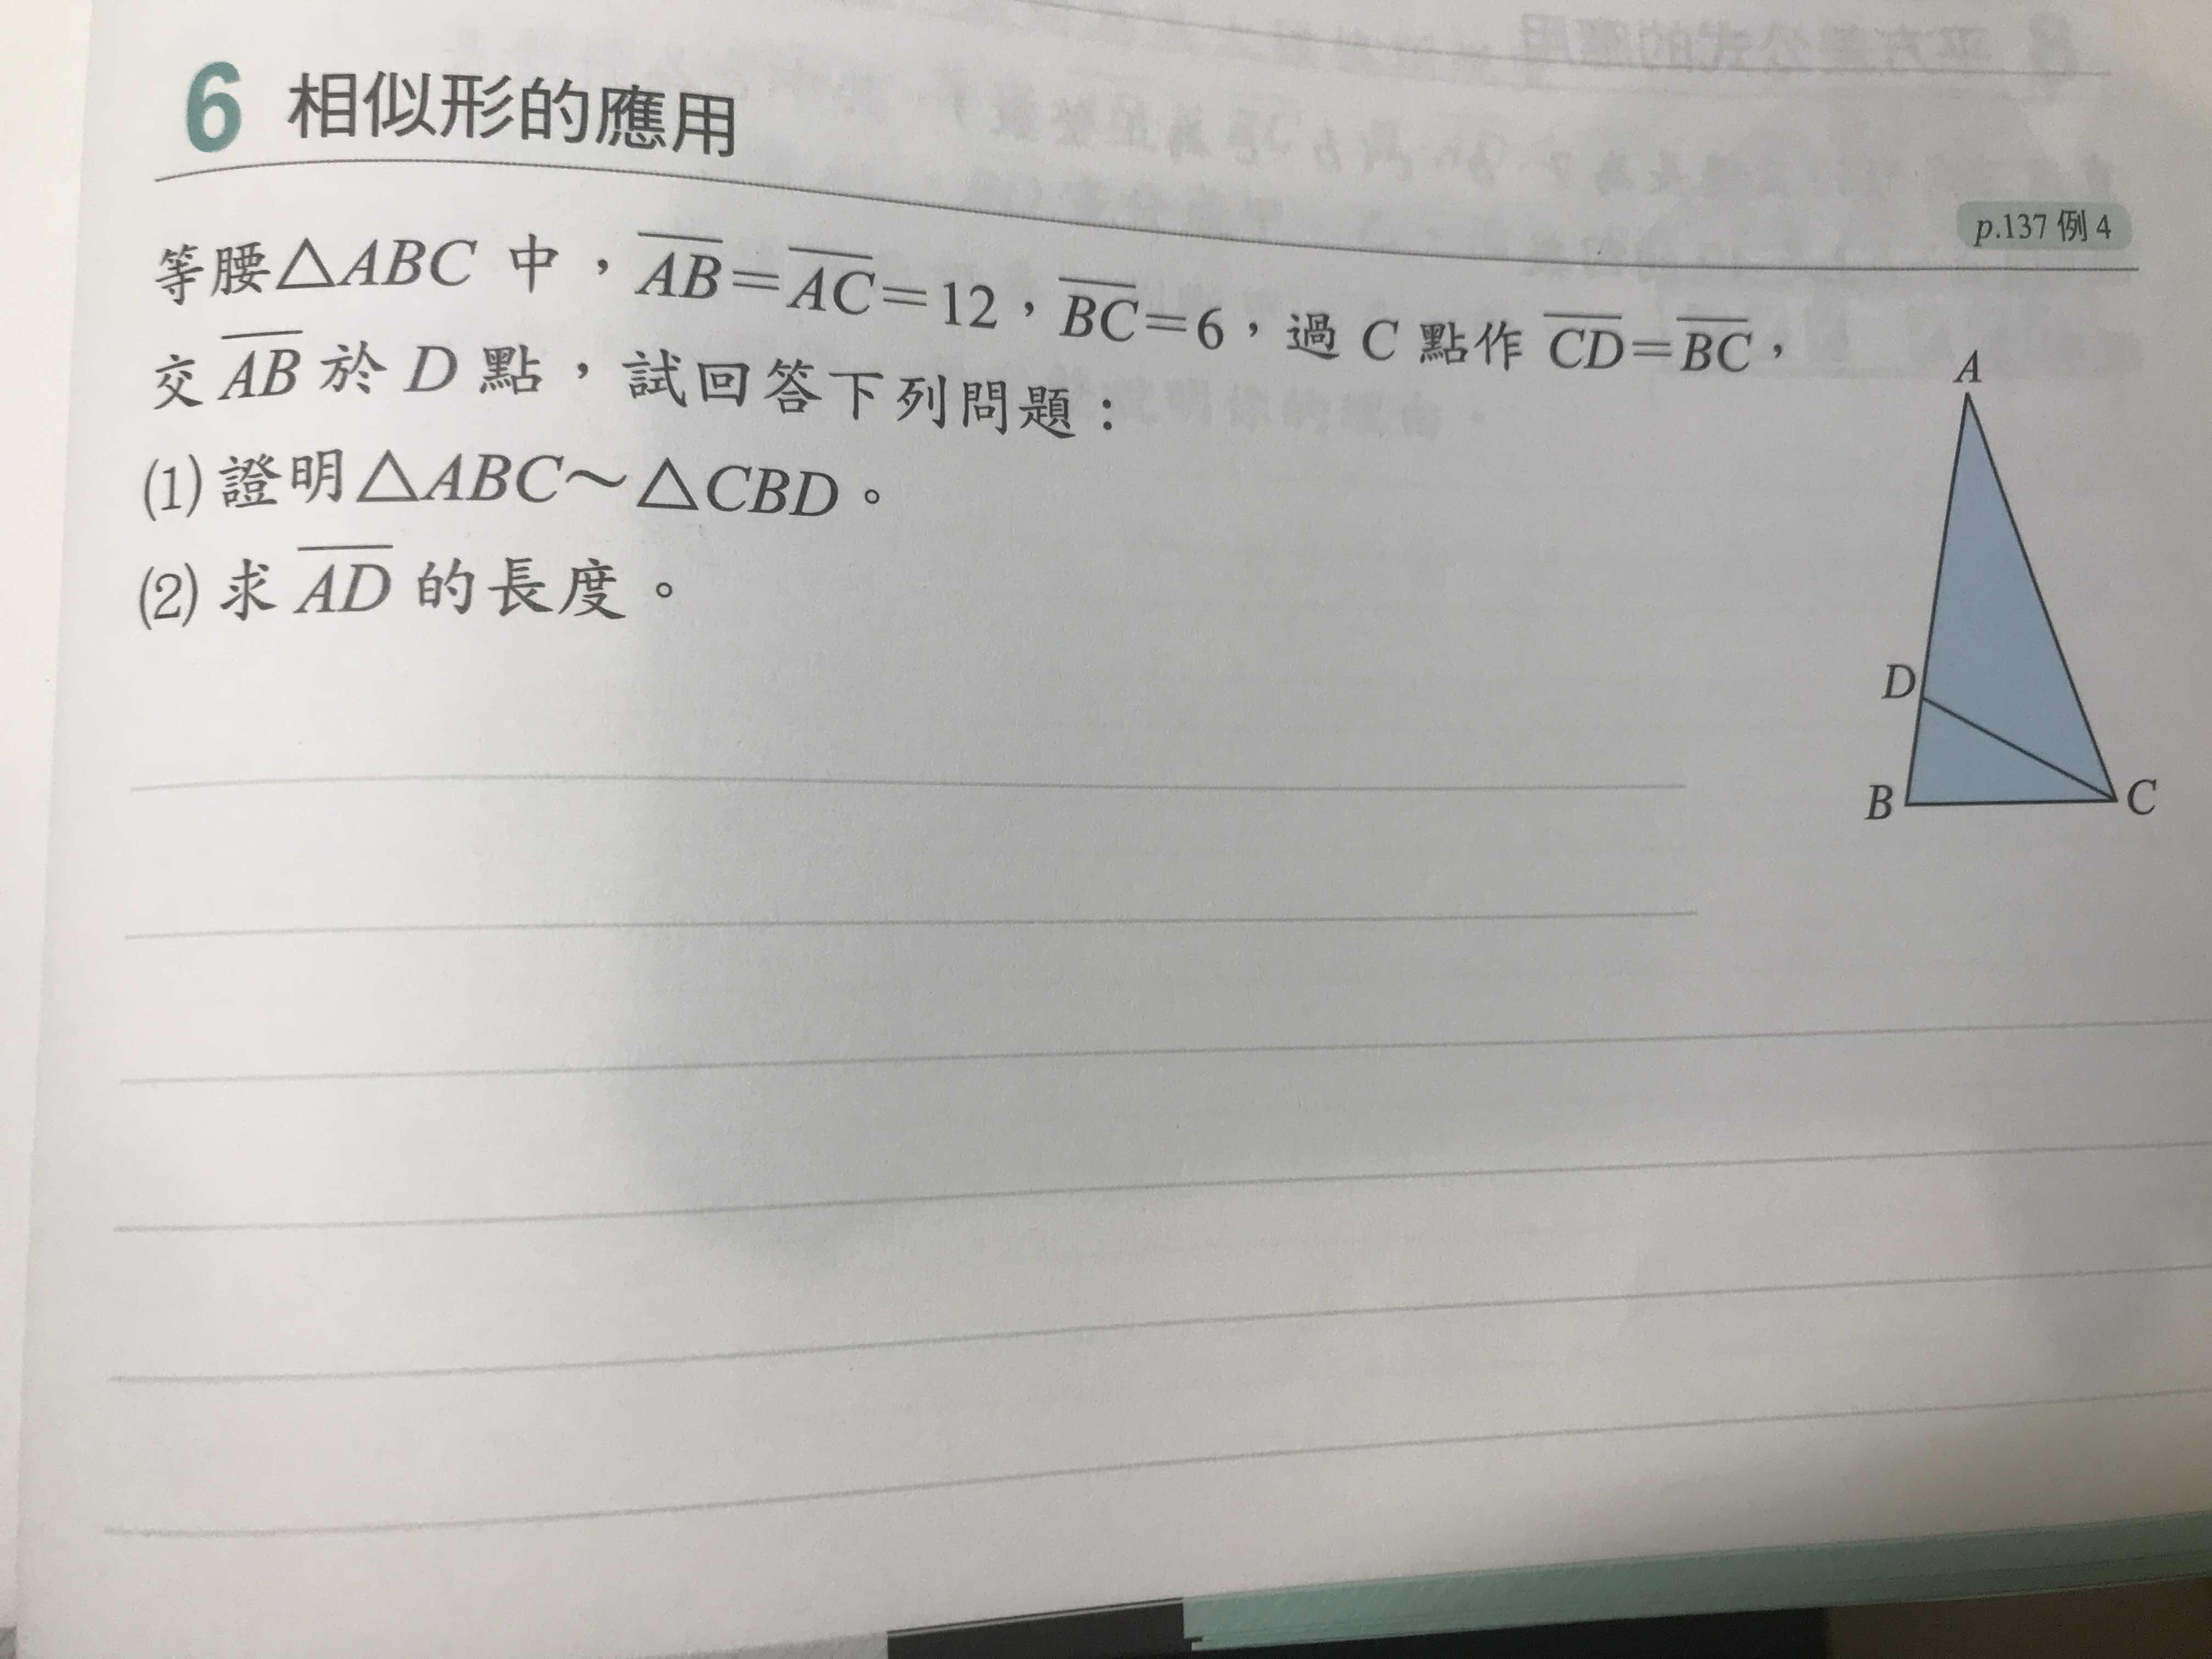 6 相似形的應用
p.137 例 4
等腰△ABC 中，AB=AC=12，BC=6，過 C 點作 CD=BC，
交 AB 於 D 點，試回答下列問題：
(1) 證明△ABC～△CBD。
(2) 求 AD 的長度。
A
D
B
C